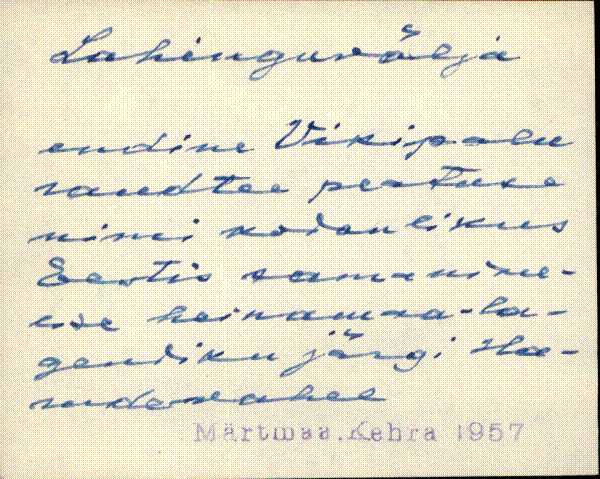 Lahinguvälja
endine Vikipalu
raudtee peatuse
nimi kodanlikus
Eestis samanime-
lise heinamaa-la-
gendiku järgi
Märtmaa. Kehra 1957